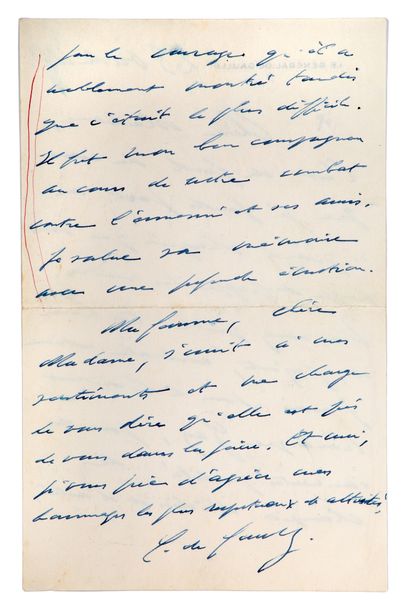 par le courage qu'il a
noblement montré tandis
que c'était le plus difficile.
Il fut mon bon compagnon
au cours de notre combat
contre l'ennemi et ses amis.
Je salue sa mémoire
avec une profonde émotion.
Ma femme, chère
Madame, s'unit à mes
sentiments et me charge
de vous dire qu'elle est près
de vous dans la peine. Et moi,
je vous prie d'agréer mes
hommages les plus respectueux et attristés.
C. de Gaulle.